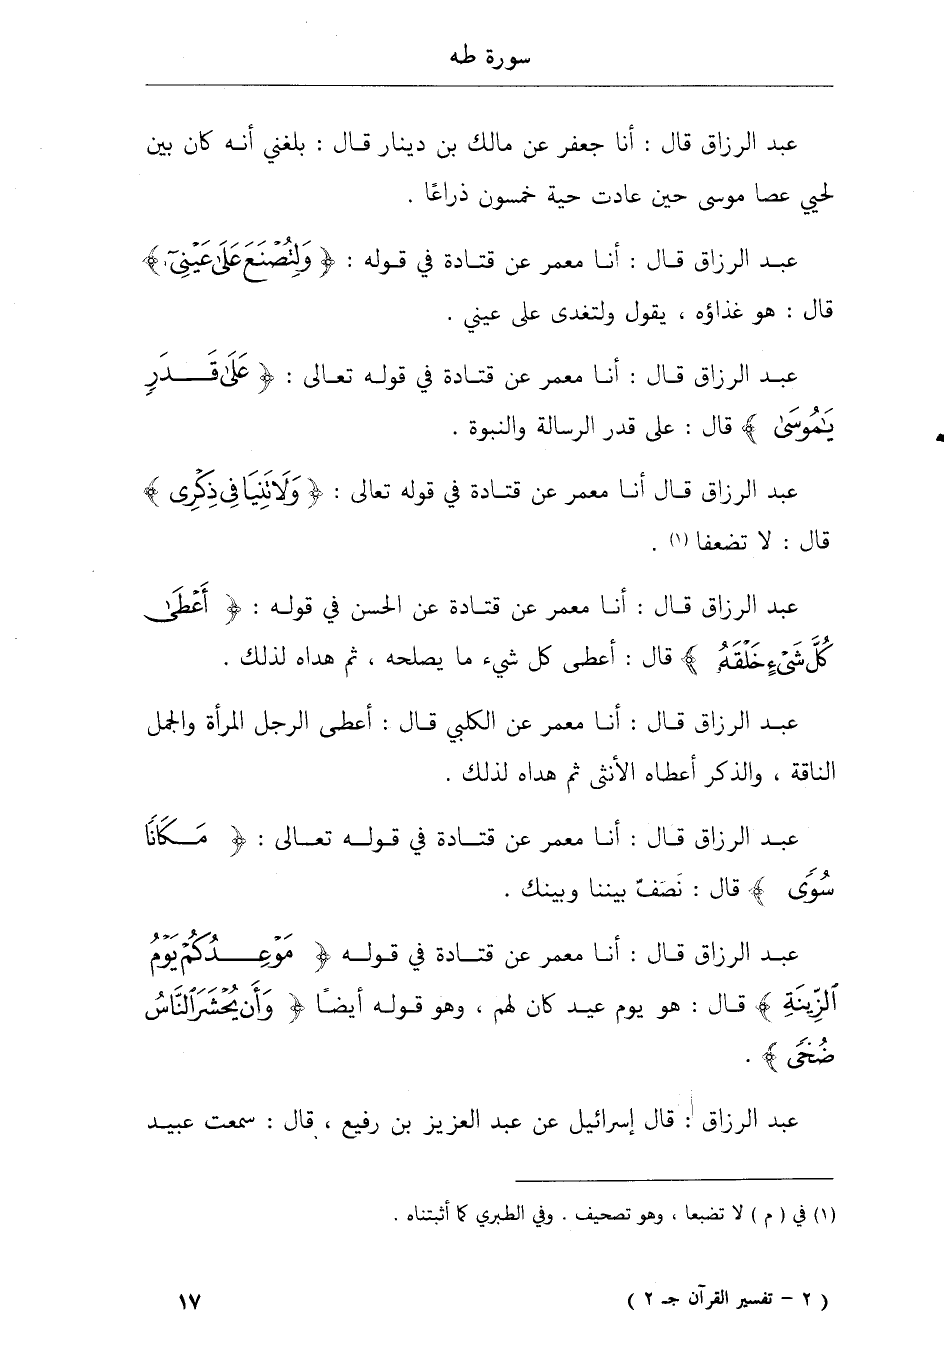 سورة طه
عبد الرزاق قال : أنا جعفر عن مالك بن دينار قال : بلغني أنه كان بين
لحيي عصا موسى حين عادت حية خمسون ذراعًا .
عبد الرزاق قال : أنا معمر عن قتادة في قوله : ﴿ وَلِتُصْنَعَ عَلَىٰ عَيْنِىٓ ﴾
قال : هو غذاؤه ، يقول ولتغدى على عيني .
عبد الرزاق قال : أنا معمر عن قتادة في قوله تعالى : ﴿ عَلَىٰ قَدَرٍ
يَٰمُوسَىٰ ﴾ قال : على قدر الرسالة والنبوة .
عبد الرزاق قال أنا معمر عن قتادة في قوله تعالى : ﴿ وَلَا تَنِيَا فِى ذِكْرِى ﴾
قال : لا تضعفا (١) .
عبد الرزاق قال : أنا معمر عن قتادة عن الحسن في قوله : ﴿ أَعْطَىٰ
كُلَّ شَىْءٍ خَلْقَهُۥ ﴾ قال : أعطى كل شيء ما يصلحه ، ثم هداه لذلك .
عبد الرزاق قال : أنا معمر عن الكلبي قال : أعطى الرجل المرأة والجمل
الناقة ، والذكر أعطاه الأنثى ثم هداه لذلك .
عبد الرزاق قال : أنا معمر عن قتادة في قوله تعالى : ﴿ مَكَانًا
سُوًى ﴾ قال : نَصَفٌ بيننا وبينك .
عبد الرزاق قال : أنا معمر عن قتادة في قوله ﴿ مَوْعِدُكُمْ يَوْمُ
ٱلزِّينَةِ ﴾ قال : هو يوم عيد كان لهم ، وهو قوله أيضًا ﴿ وَأَن يُحْشَرَ ٱلنَّاسُ
ضُحًى ﴾ .
عبد الرزاق : قال إسرائيل عن عبد العزيز بن رفيع ، قال : سمعت عبيد
(١) في ( م ) لا تضبعا ، وهو تصحيف . وفي الطبري كما أثبتناه .
( ٢ – تفسير القرآن جـ ٢ )
١٧